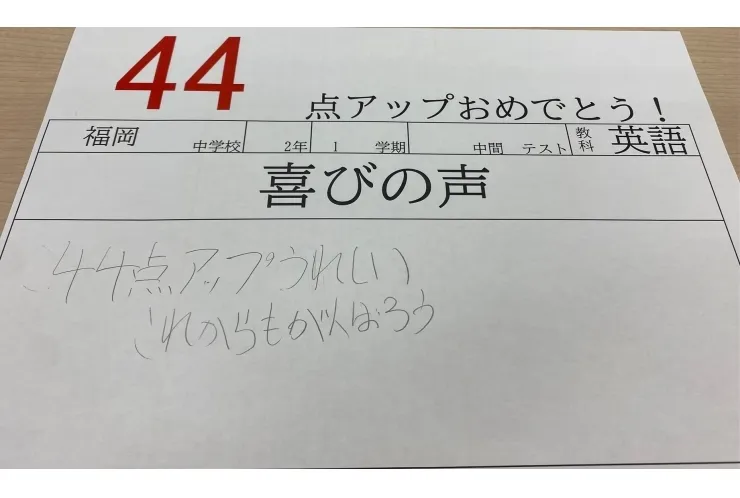 44
点アップおめでとう!
福岡 中学校 2年 1 学期 中間 テスト 教科 英語
喜びの声
44点アップうれしい
これからもがんばろう